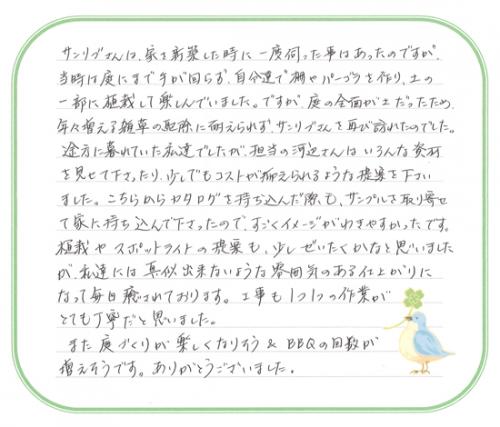 サンリブさんは、家を新築した時に一度伺った事はあったのですが、
当時は庭にまで手が回らず、自分達で棚やパーゴラを作り、土の
一部に植栽して楽しんでいました。ですが、庭の全面が土だったため、
年々増える雑草の駆除に耐えられず、サンリブさんを再び訪れたのでした。
途方に暮れていた私達でしたが、担当の河辺さんはいろんな資材
を見せて下さったり、少しでもコストが抑えられるような提案を下さい
ました。こちらからカタログを持ち込んだ際も、サンプルを取り寄せ
て家に持ち込んで下さったので、すごくイメージがわきやすかったです。
植栽やスポットライトの提案も、少しぜいたくかなと思いました
が、私達には真似出来ないような雰囲気のある仕上がりに
なって毎日癒されております。工事も1つ1つの作業が
とても丁寧だと思いました。
また庭づくりが楽しくなりそう&BBQの回数が
増えそうです。ありがとうございました。